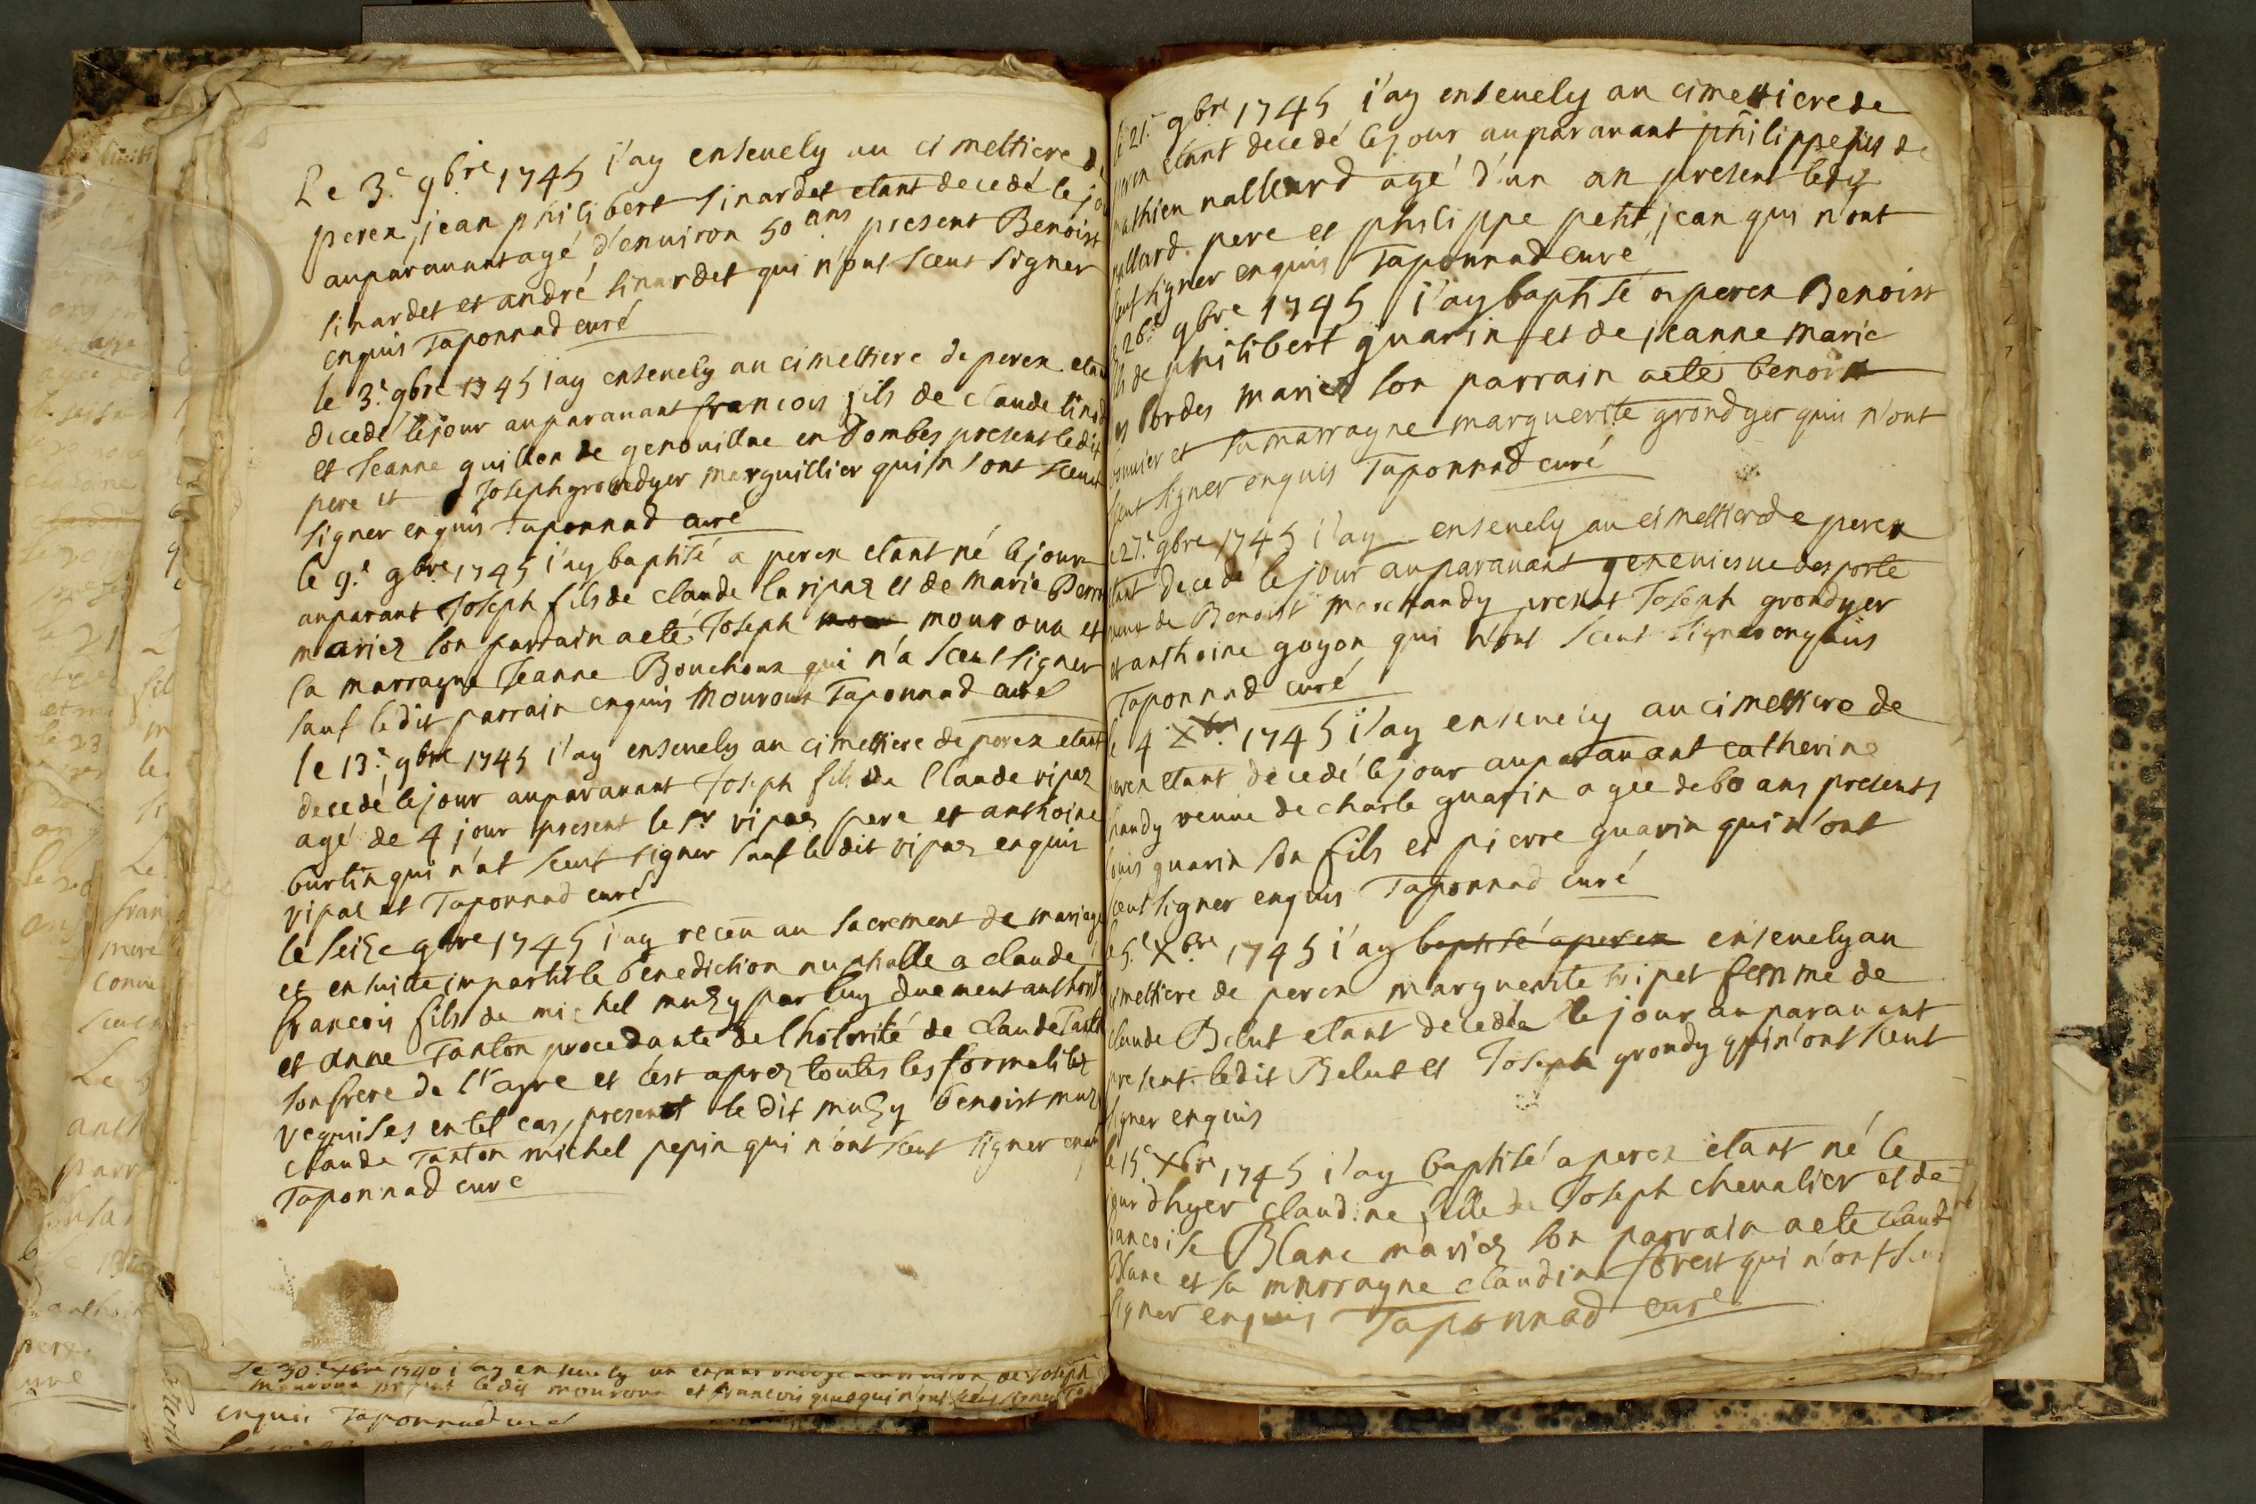 Le 3.e 9bre 1745 i'ay enseuely au cimettiere de
perex jean philibert sinardet etant decedé le jo
auparauant agé d'enuiron 50 ans present Benoist
sinardet et andré sinardet qui n'ont sceut signer
enquis Taponnad curé
le 3.e 9bre 1745 i'ay enseuely au cimettiere de perex etan
decedé le jour auparauant francois fils de Claude
et Jeanne guillon de genouillae en Dombes present ledit
pere et Joseph grondyer marguillier qui n'ont sceut
signer enquis Taponnad curé
le 9.e 9bre 1745 i'ay baptisé a perex etant né le jour
auparant Joseph fils de claude la ripaz et de Marie Perr
mariez son parrain aeté Joseph mouroux et
sa marrayne Jeanne Bouchoux qui n'a sceut signer
sauf ledit parrain enquis Mouroux Taponnad curé
le 13.e 9bre 1745 i'ay enseuely au cimettiere de perex etant
decedé le jour auparauant Joseph fils de Claude ripaz
agé de 4 jour present le sr ripaz pere et anthoine
burtin qui n'at sceut signer sauf ledit ripaz enquis
ripaz et Taponnad curé
le seize 9bre 1745 i'ay receu au sacrement de mariage
et ensuitte impartit le benediction nuptialle a claude
francois fils de michel muzy par luy duement authori
et anne Tanton procedante de l'hotorité de claude Tant
son frere de l'egre et c'est aprez toutes les formalitez
requises en tel cas, present le dit muzy benoist muz
claude Tanton michel pepin qui n'ont sceut signer enqui
Taponnad curé
Le 30.e xbre 1740 i'ay enseuely un enfant de Joseph
mouroux present ledit mouroux et francois qui n'ont sceut signer
enquis Taponnad curé
le 21.e 9bre 1745 i'ay enseuely au cimettiere de
perex etant decedé le jour auparauant philippe fils de
mathieu nallard agé d'un an present ledit
nallard pere et philippe petit jean qui n'ont
sceut signer enquis Taponnad curé
le 26.e 9bre 1745 i'ay baptisé a perex Benoist
fils de philibert guarin et de jeanne marie
des bordes mariez son parrain aeté benoist
bonnier et sa marrayne marguerite grondyer qui n'ont
sceut signer enquis Taponnad curé
le 27.e 9bre 1745 i'ay enseuely au cimettier de perex
etant decedé le jour auparauant geneuieue des porte
de Benoist marchandy present Joseph grondyer
et anthoine goyon qui n'ont sceut signer enquis
Taponnad curé
le 4 Xbre 1745 i'ay enseuely au cimettiere de
perex etant decedé le jour auparauant catherine
veuue de charle guarin agée de 60 ans presents
louis guarin son fils et pierre guarin qui n'ont
sceut signer enquis Taponnad curé
le 5.e Xbre 1745 i'ay baptisé a perex enseuely au
cimettiere de perex marguerite tripet femme de
claude Belut etant decedée le jour auparauant
present ledit Belut et Joseph grondy qui n'ont sceut
signer enquis
le 15.e Xbre 1745 i'ay baptisé a perex etant né le
jour dhyer claudine fille de Joseph cheualier et de
francoise Blanc mariez son parrain aeté claude
Blanc et sa marrayne claudine forest qui n'ont sceu
signer enquis Taponnad curé